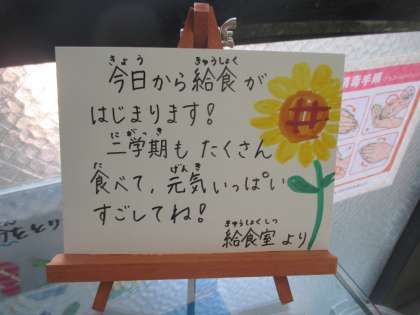 きょう きゅうしょく
今日から給食が
はじまります!
にがっき
二学期もたくさん
た げんき
食べて、元気いっぱい
すごしてね!
きゅうしょくしつ
給食室より